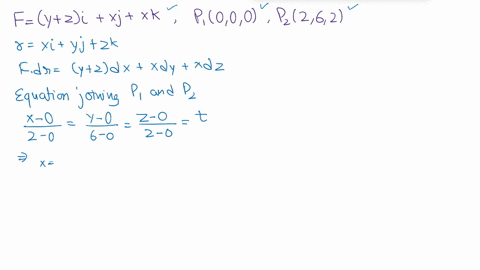 F=(y+z)i + xj + xk ✓, P₁(0,0,0)✓, P₂(2,6,2)✓
r = xi + yj + zk
F.dr= (y+z)dx + xdy + xdz
Equation joining P₁ and P₂
x-0/2-0 = y-0/6-0 = z-0/2-0 = t
⇒ x=